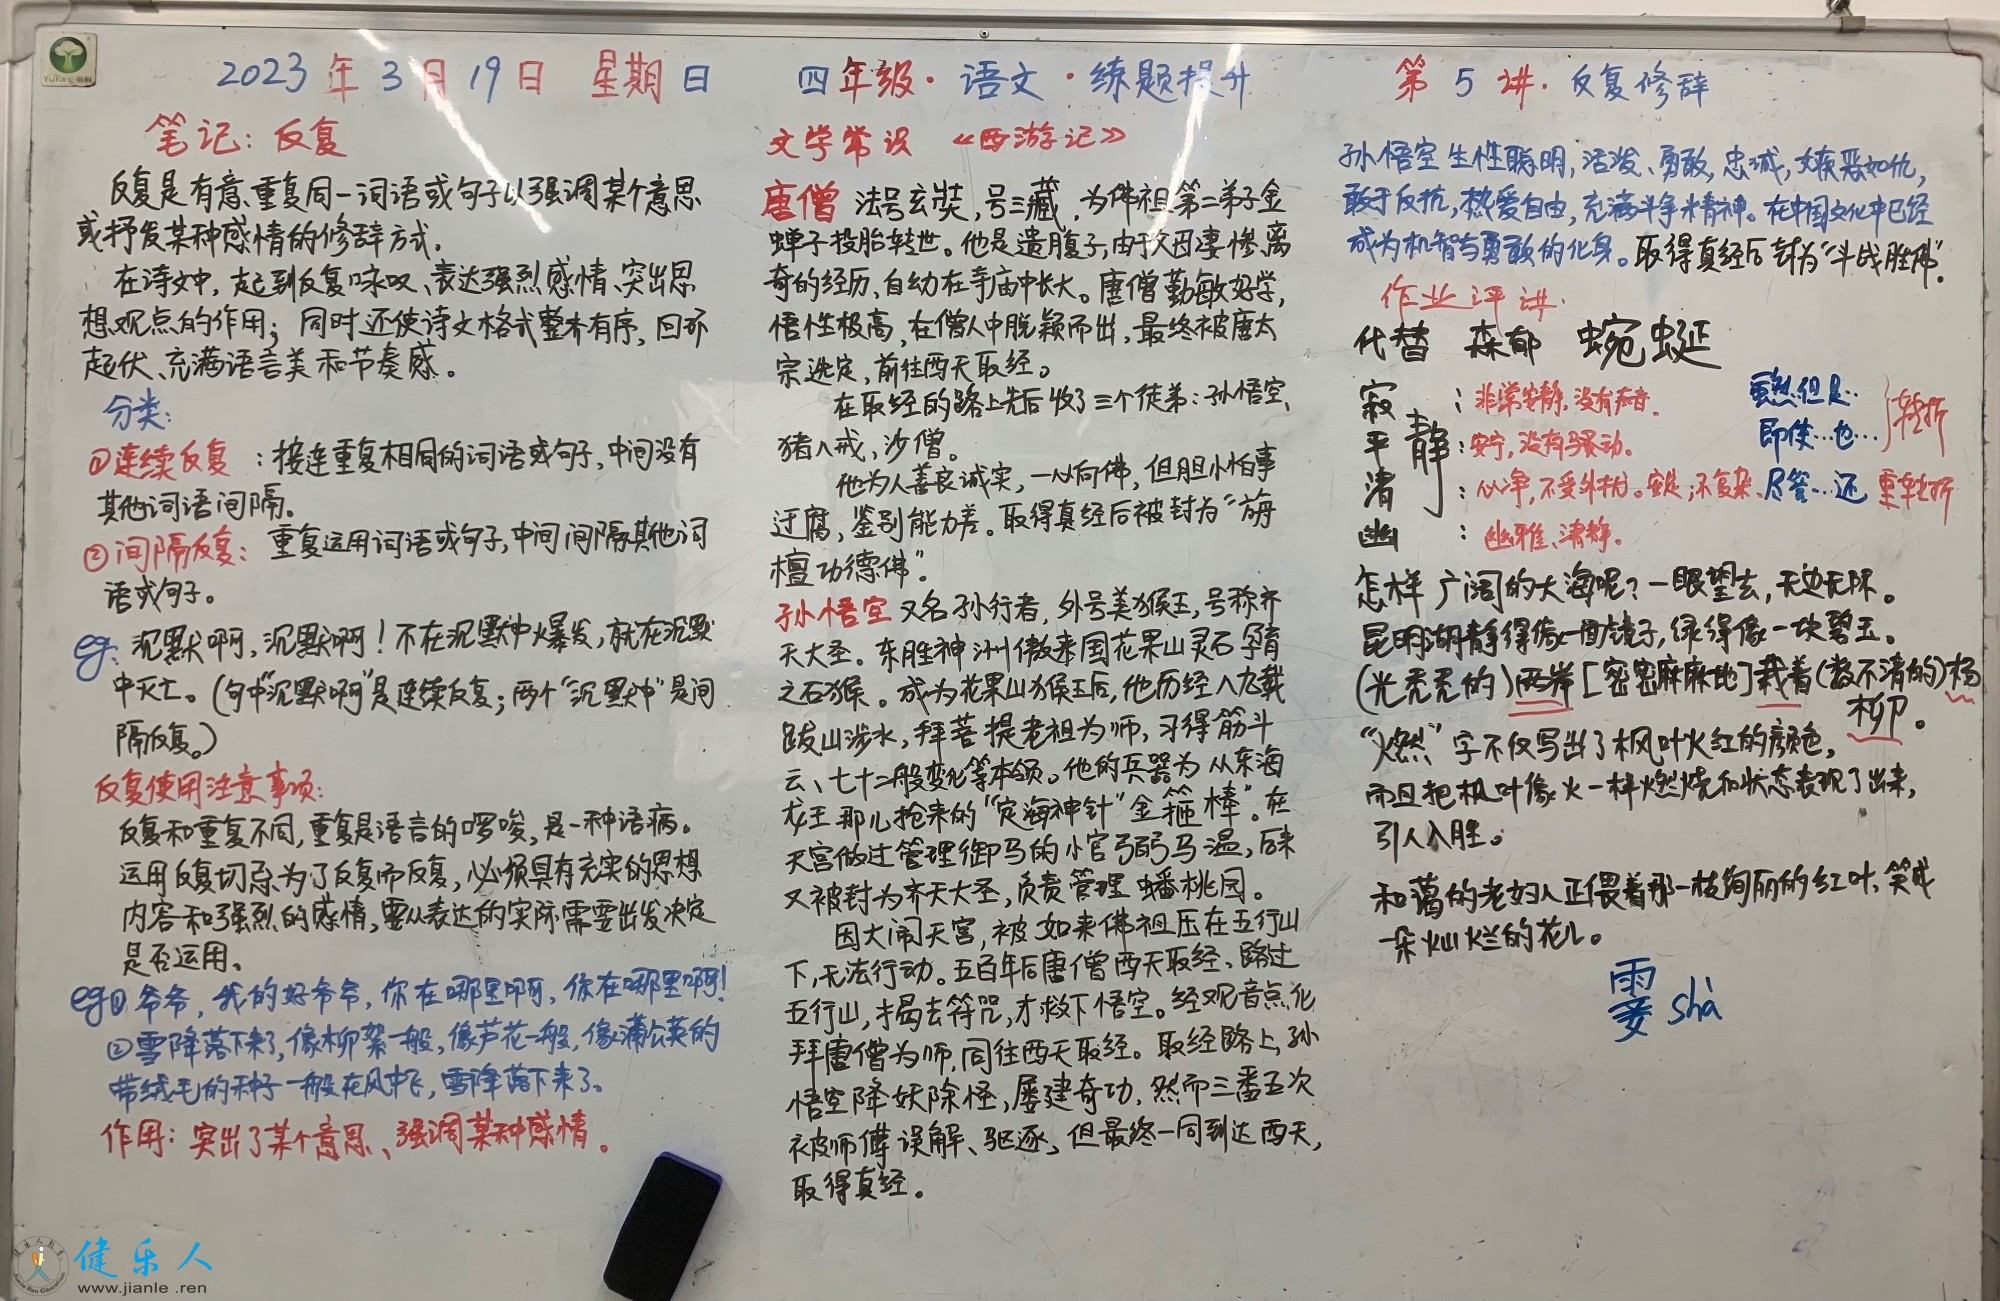 2023年3月19日 星期日 四年级·语文·练题提升 第5讲·反复修辞
笔记：反复
反复是有意重复同一词语或句子以强调某个意思
或抒发某种感情的修辞方式.
在诗文中，起到反复咏叹、表达强烈感情、突出思
想观点的作用；同时还使诗文格式整齐有序，回环
起伏、充满语言美和节奏感。
分类：
①连续反复：接连重复相同的词语或句子，中间没有
其他词语间隔。
②间隔反复：重复运用词语或句子，中间间隔其他词
语或句子。
eg：沉默啊，沉默啊！不在沉默中爆发，就在沉默
中灭亡。(句中"沉默啊"是连续反复；两个"沉默中"是间
隔反复。)
反复使用注意事项：
反复和重复不同，重复是语言的啰唆，是一种语病。
运用反复切忌为了反复而反复，必须具有充实的思想
内容和强烈的感情，要从表达的实际需要出发决定
是否运用。
eg①爷爷，我的好爷爷，你在哪里啊，你在哪里啊！
②雪降落下来了，像柳絮一般，像芦花一般，像蒲公英的
带绒毛的种子一般在风中飞，雪降落下来了。
作用：突出了某个意思、强调某种感情。
文学常识 《西游记》
唐僧 法号玄奘，号三藏，为佛祖第二弟子金
蝉子投胎转世。他是遗腹子，由于父母凄惨、离
奇的经历、自幼在寺庙中长大。唐僧勤敏好学，
悟性极高，在僧人中脱颖而出，最终被唐太
宗选定，前往西天取经。
在取经的路上先后收了三个徒弟：孙悟空、
猪八戒，沙僧。
他为人善良诚实，一心向佛，但胆小怕事
迂腐，鉴别能力差。取得真经后被封为"旃
檀功德佛".
孙悟空 又名孙行者，外号美猴王，号称齐
天大圣。东胜神洲傲来国花果山灵石孕育
之石猴。成为花果山猴王后，他历经八九载
跋山涉水，拜菩提老祖为师，习得筋斗
云、七十二般变化等本领。他的兵器为从东海
龙王那儿抢来的"定海神针"金箍棒"。在
天宫做过管理御马的小官弼马温，后来
又被封为齐天大圣，负责管理蟠桃园。
因大闹天宫，被如来佛祖压在五行山
下，无法行动。五百年后唐僧西天取经，路过
五行山，揭去符咒，才救下悟空。经观音点化
拜唐僧为师，同往西天取经。取经路上，孙
悟空降妖除怪，屡建奇功，然而三番五次
被师傅误解、驱逐，但最终一同到达西天，
取得真经。
孙悟空生性聪明，活泼、勇敢，忠诚，嫉恶如仇，
敢于反抗，热爱自由，充满斗争精神。在中国文化中已经
成为机智与勇敢的化身。取得真经后封为"斗战胜佛".
作业评讲.
代替 森郁 蜿蜒
寂：非常安静，没有声音.
平静：安宁，没有骚动。
清：心净，不受外扰。安定；不复杂.
幽：幽雅、清静.
虽然但是..
即使…也… 转折
尽管…还 重转折
怎样广阔的大海呢？一眼望去，无边无际。
昆明湖静得像一面镜子，绿得像一块碧玉。
(光秃秃的)两岸[密密麻麻地]栽着(数不清的)杨
柳。
"火燃"字不仅写出了枫叶火红的颜色，
而且把枫叶像火一样燃烧的状态表现了出来，
引人入胜。
和蔼的老妇人正偎着那一枝绚丽的红叶，笑成
一朵灿烂的花儿。
霎 shà
Yufang
健乐人
www.jianle.ren